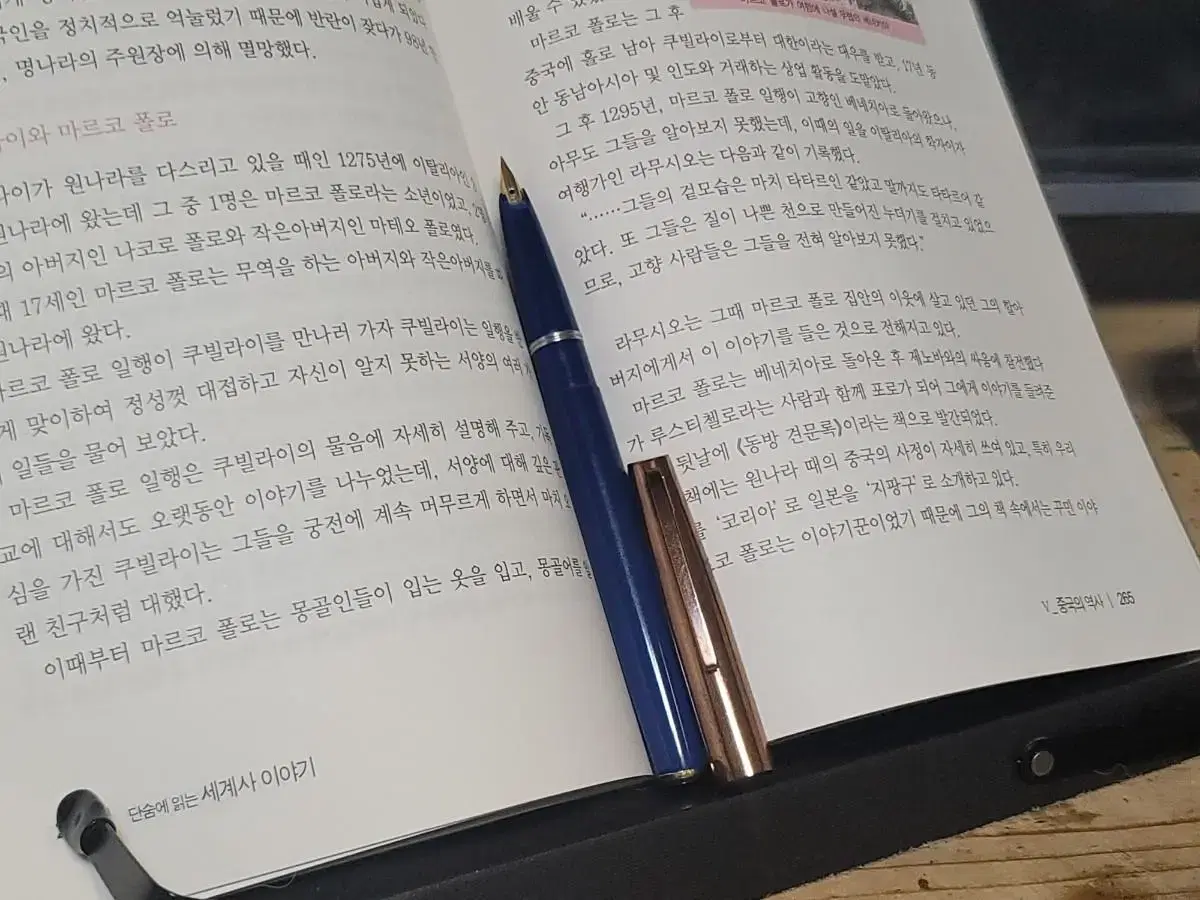 인을 정치적으로 억눌렀기 때문에 반란이 잦다가 98년
명나라의 주원장에 의해 멸망했다.
이와 마르코 폴로
이가 원나라를 다스리고 있을 때인 1275년에 이탈리아인
나라에 왔는데 그 중 1명은 마르코 폴로라는 소년이었고,
의 아버지인 니코로 폴로와 작은아버지인 마테오 폴로였다.
17세인 마르코 폴로는 무역을 하는 아버지와 작은아버지를
나라에 왔다.
마르코 폴로 일행이 쿠빌라이를 만나러 가자 쿠빌라이는 일행을
게 맞이하여 정성껏 대접하고 자신이 알지 못하는 서양의 여러
일들을 물어 보았다.
마르코 폴로 일행은 쿠빌라이의 물음에 자세히 설명해 주고,
교에 대해서도 오랫동안 이야기를 나누었는데, 서양에 대해 깊은
심을 가진 쿠빌라이는 그들을 궁전에 계속 머무르게 하면서 마치
랜 친구처럼 대했다.
이때부터 마르코 폴로는 몽골인들이 입는 옷을 입고, 몽골어를
단숨에 읽는 세계사 이야기
배울 수
마르코 폴로는 그 후
중국에 홀로 남아 쿠빌라이로부터 대한이라는 대우를 받고, 17년 동
안 동남아시아 및 인도와 거래하는 상업 활동을 도맡았다.
그 후 1295년, 마르코 폴로 일행이 고향인 베네치아로 돌아왔으나,
아무도 그들을 알아보지 못했는데, 이때의 일을 이탈리아의 학자이자
여행가인 라무시오는 다음과 같이 기록했다.
“……그들의 겉모습은 마치 타타르인 같았고 말까지도 타타르어 같
았다. 또 그들은 질이 나쁜 천으로 만들어진 누더기를 걸치고 있었으
므로, 고향 사람들은 그들을 전혀 알아보지 못했다.”
라무시오는 그때 마르코 폴로 집안의 이웃에 살고 있던 그의 할아
버지에게서 이 이야기를 들은 것으로 전해지고 있다.
마르코 폴로는 베네치아로 돌아온 후 제노바와의 싸움에 참전했다
가 루스티첼로라는 사람과 함께 포로가 되어 그에게 이야기를 들려준
뒷날에 《동방 견문록》이라는 책으로 발간되었다.
책에는 원나라 때의 중국의 사정이 자세히 쓰여 있고, 특히 우리
를 ‘코리아’로 일본을 ‘지팡구’로 소개하고 있다.
코 폴로는 이야기꾼이었기 때문에 그의 책 속에서는 꾸민 이야
Ⅴ_중국의 역사 | 265